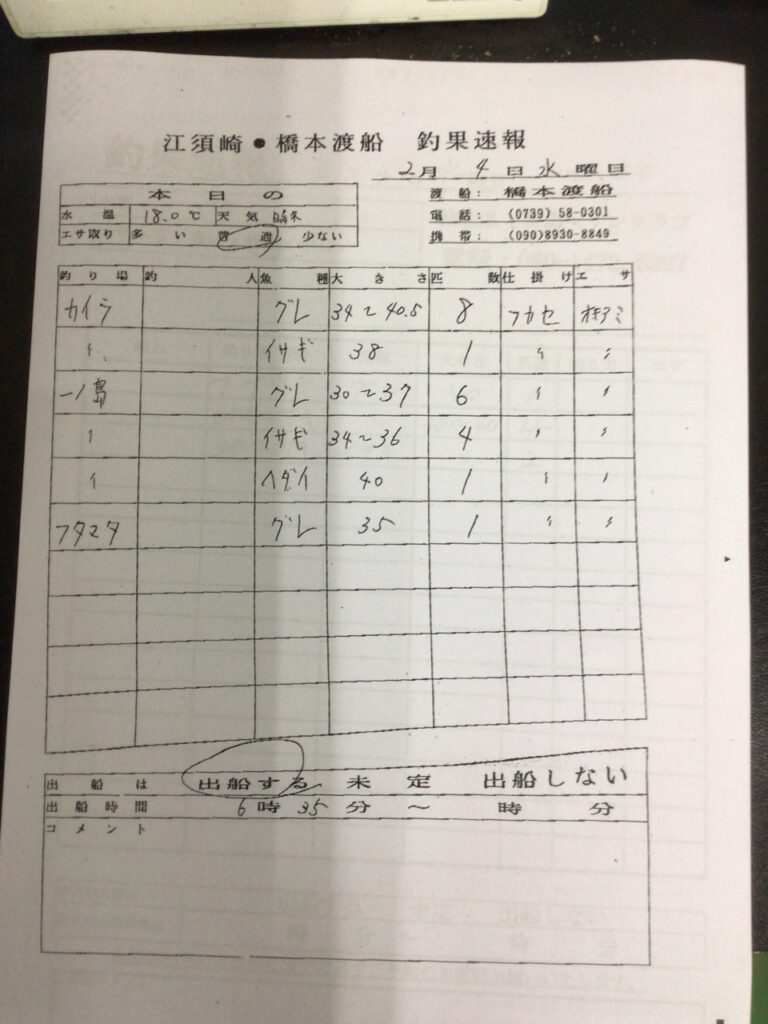 江須崎●橋本渡船 釣果速報
2月 4日 水曜日
本日の
水温 18.0℃ 天気 晴れ
エサ取り 多い 普通 少ない
渡船: 橋本渡船
電話: (0739) 58-0301
携帯: (090)8930-8849
釣り場 釣人 魚種 大きさ 匹数 仕掛け エサ
カイラ グレ 34〜40.5 8 フカセ オキアミ
〃 イサギ 38 1 〃 〃
一ノ島 グレ 30〜37 6 〃 〃
〃 イサギ 34〜36 4 〃 〃
〃 ヘダイ 40 1 〃 〃
フタマタ グレ 35 1 〃 〃
出船は 出船する 未定 出船しない
出船時間 6時35分〜 時 分
コメント